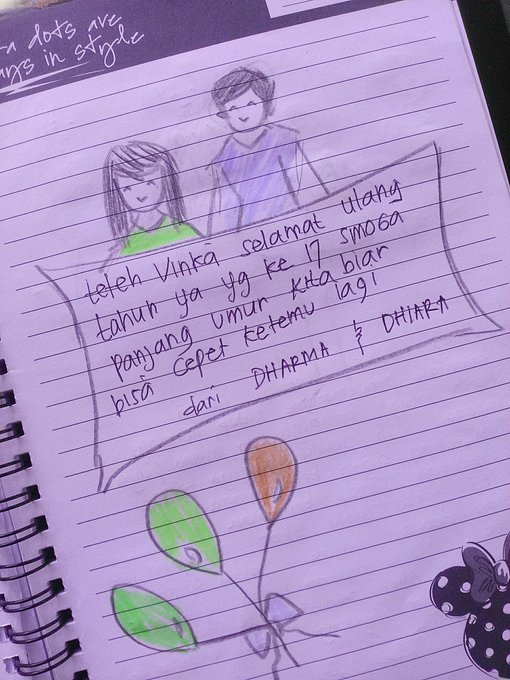 dots are
in style
teteh Vinka selamat ulang
tahun ya yg ke 17 smoga
panjang umur kita biar
bisa cepet ketemu lagi
dari DHARMA & DHIARA